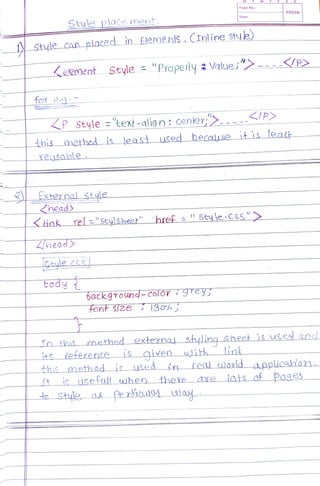 Style placement.
1) Style can placed in Elements. (Inline style)
<element Style = "Property : Value;"> ---- </P>
for e.g. -
<P style = "text-align : center;">---- </P>
this method is least used because it is least
reusable.
2) External style
<head>
<link rel = "stylsheet" href = "style.css">
</head>
style.css
body {
background-color : grey;
font size : 130%;
}
In this method external styling sheet is used and
its reference is given with link
this method is used in real world application.
It is usefull when there are lots of pages
to style as perticular way.